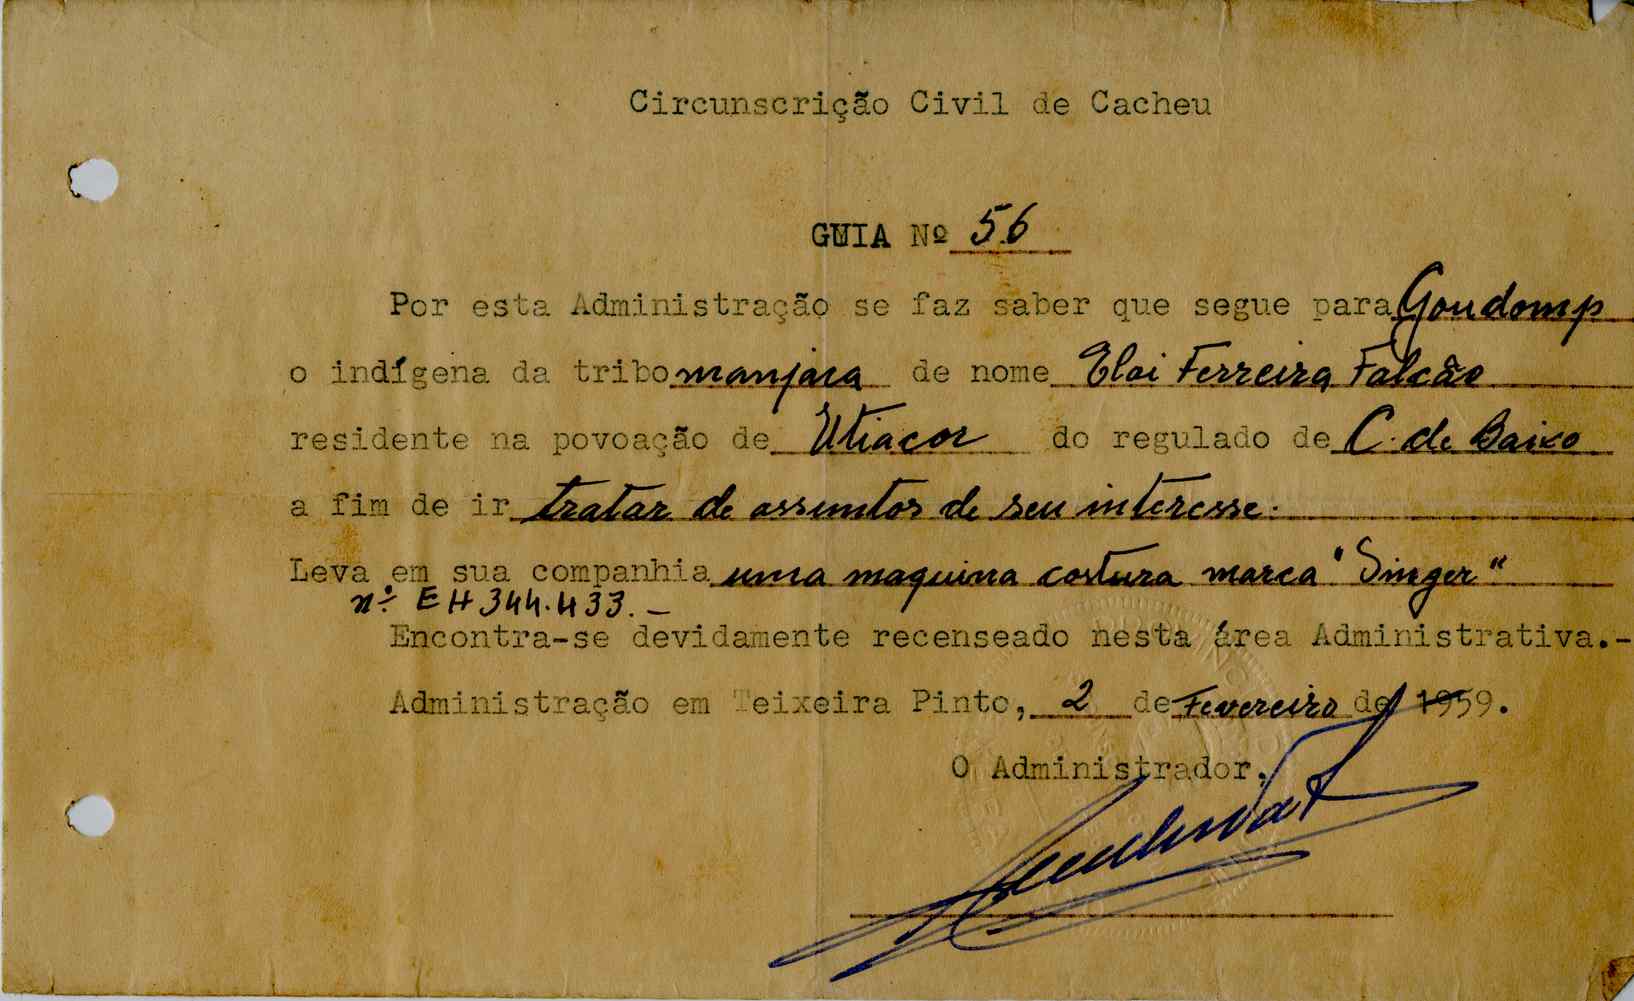 Circunscrição Civil de Cacheu
GUIA Nº 56
Por esta Administração se faz saber que segue para Goudomp
o indígena da tribo manjaca de nome Eloi Ferreira Falcão
residente na povoação de Utiacor do regulado de C. de Baixo
a fim de ir tratar de assuntos de seu interesse.
Leva em sua companhia uma maquina costura marca "Singer"
nº EH 344.433.—
Encontra-se devidamente recenseado nesta área Administrativa.-
Administração em Teixeira Pinto, 2 de Fevereiro de 1959.
O Administrador,